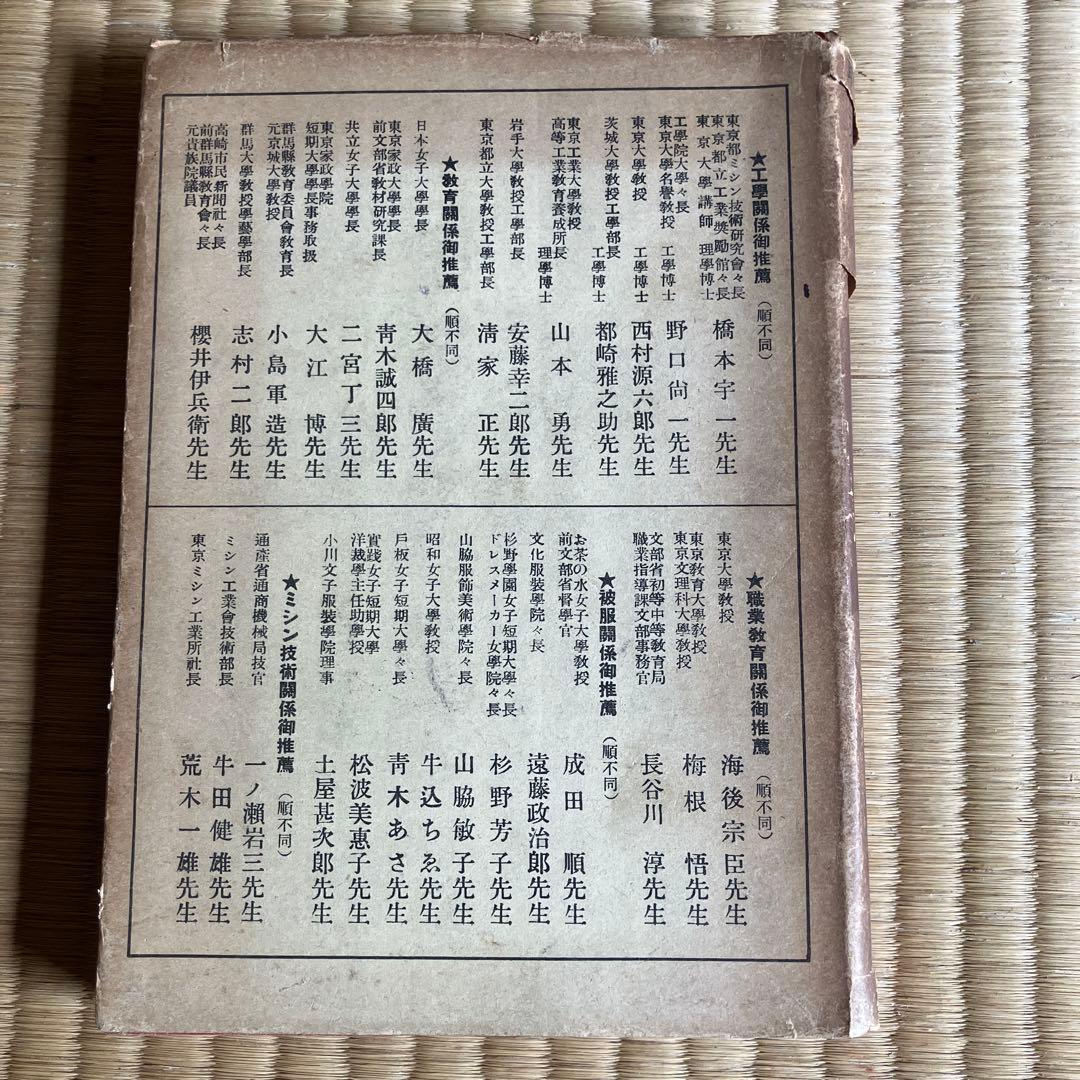 ★工學關係御推薦（順不同）
東京都ミシン技術研究會々長
東京都立工業奬勵館々長
東京大學講師　理學博士　橋本宇一先生
工學院大學々長
東京大學名譽教授　工學博士　野口尙一先生
東京大學教授　工學博士　西村源六郎先生
茨城大學教授工學部長　工學博士　都崎雅之助先生
東京工業大學教授
高等工業教育養成所長　理學博士　山本勇先生
岩手大學教授工學部長　安藤幸二郎先生
東京都立大學教授工學部長　淸家正先生
★教育關係御推薦（順不同）
日本女子大學學長　大橋廣先生
東京家政大學學長
前文部省教材研究課長　靑木誠四郎先生
共立女子大學學長　二宮丁三先生
東京家政學院
短期大學學長事務取扱　大江博先生
群馬縣教育委員會教育長
元京城大學教授　小島軍造先生
群馬大學教授學藝學部長　志村二郎先生
高崎市民新聞社々長
前群馬縣教育會々長
元貴族院議員　櫻井伊兵衛先生
★職業教育關係御推薦（順不同）
東京大學教授　海後宗臣先生
東京教育大學教授
東京文理科大學教授　梅根悟先生
文部省初等中等教育局
職業指導課文部事務官　長谷川淳先生
★被服關係御推薦（順不同）
お茶の水女子大學教授
前文部省督學官　成田順先生
文化服裝學院々長　遠藤政治郎先生
杉野學園女子短期大學々長
ドレスメーカー女學院々長　杉野芳子先生
山脇服飾美術學院々長　山脇敏子先生
昭和女子大學教授　牛込ちゑ先生
戶板女子短期大學々長　靑木あさ先生
實踐女子短期大學
洋裁學主任助學授　松波美惠子先生
小川文子服裝學院理事　土屋甚次郎先生
★ミシン技術關係御推薦（順不同）
通產省通商機械局技官　一ノ瀨岩三先生
ミシン工業會技術部長　牛田健雄先生
東京ミシン工業所社長　荒木一雄先生